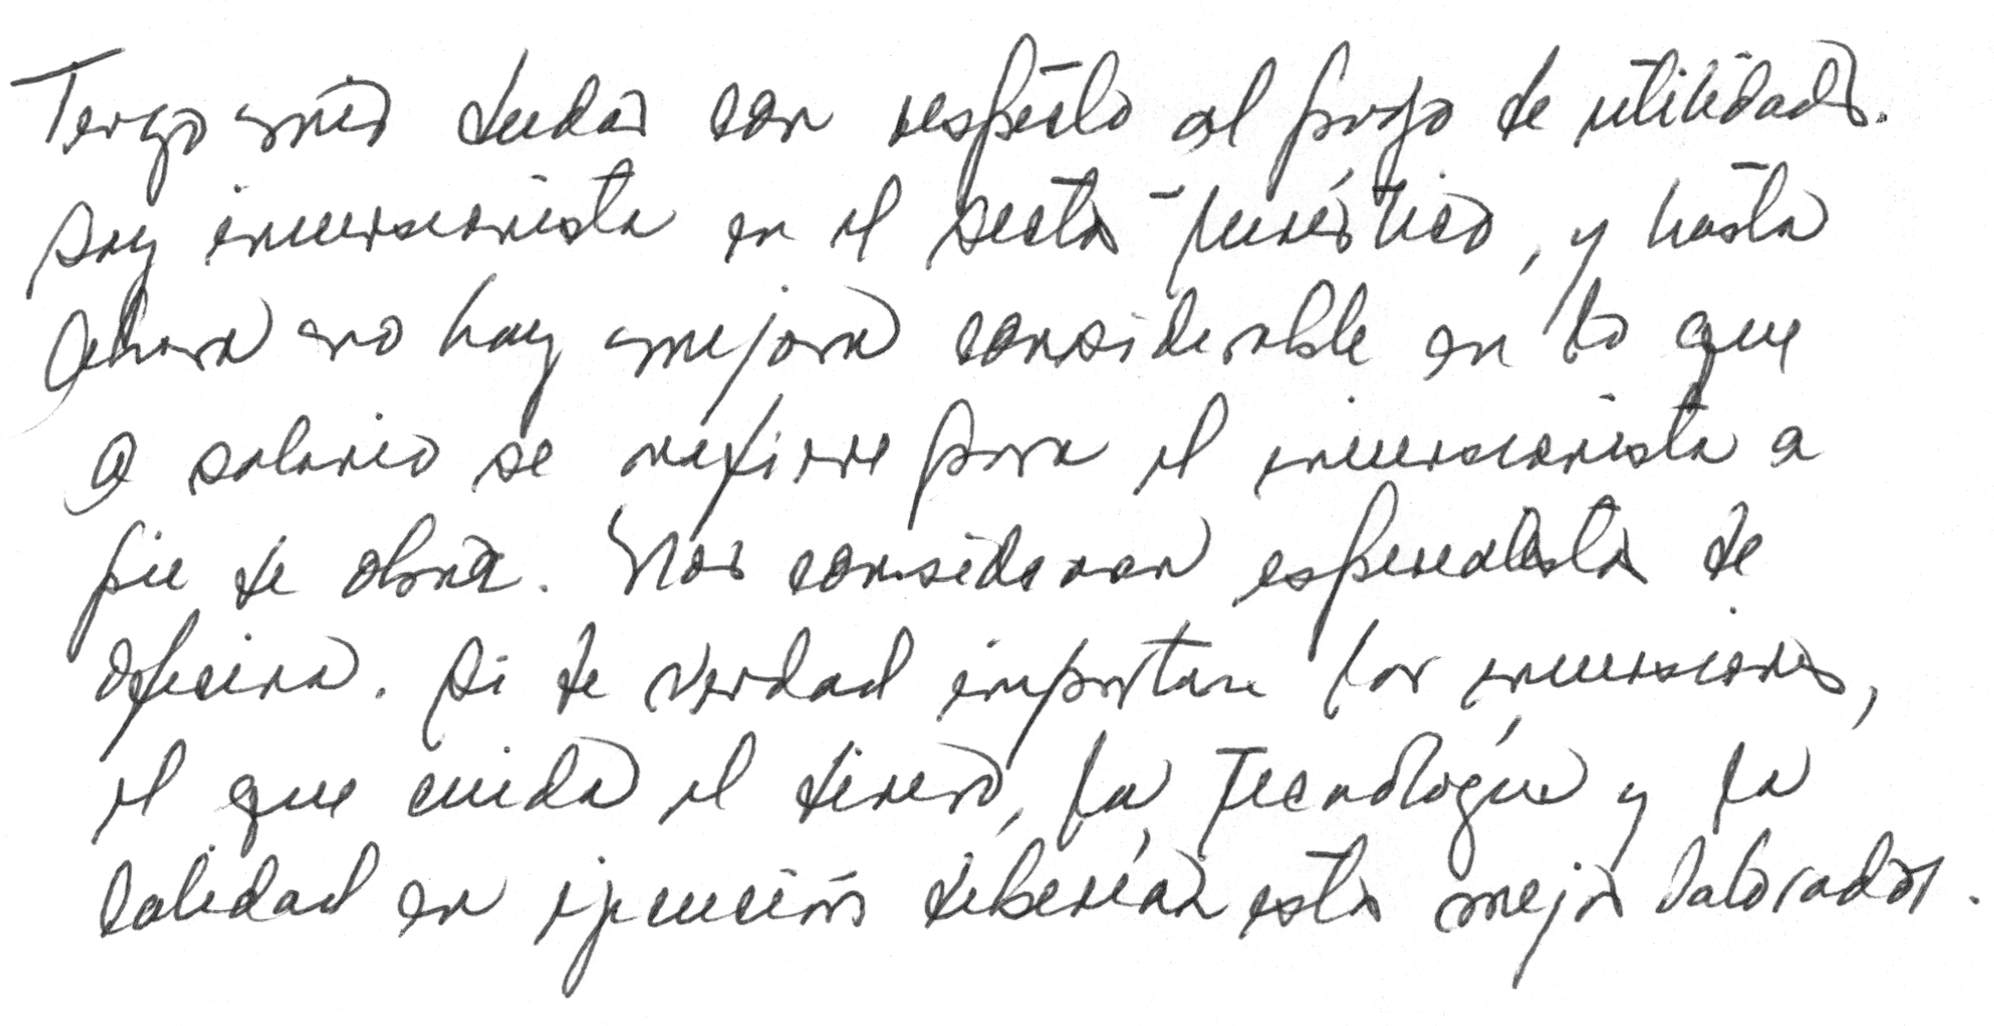 Tengo mis dudas con respecto al pago de utilidades.
Soy inversionista en el sector turístico, y hasta
ahora no hay mejora considerable en lo que
a salario se refiere para el inversionista a
pie de obra. Nos consideran especialistas de
oficina. Si de verdad importan las inversiones,
el que cuida el dinero, la tecnología y la
calidad en ejecución deberían estar mejor valorados.